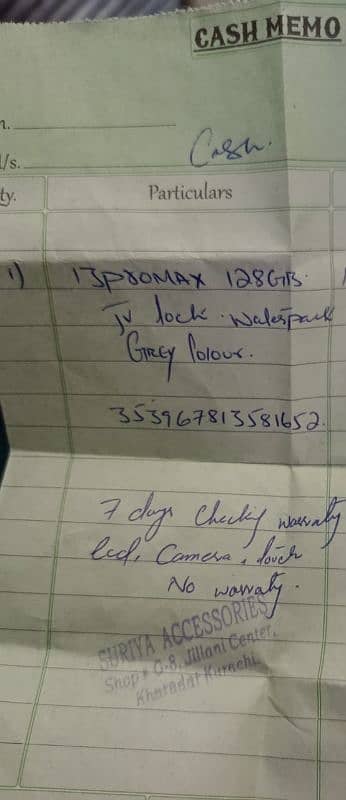 CASH MEMO
Cash.
Particulars
1) 13PROMAX 128GB.
JV lock. Waterpack
GREY Colour.
353967813581652.
7 days Checking warranty
lcd, Camera, touch
No warraty.
SURIYA ACCESSORIES
Shop # G-8, Jillani Center,
Kharadar Karachi.